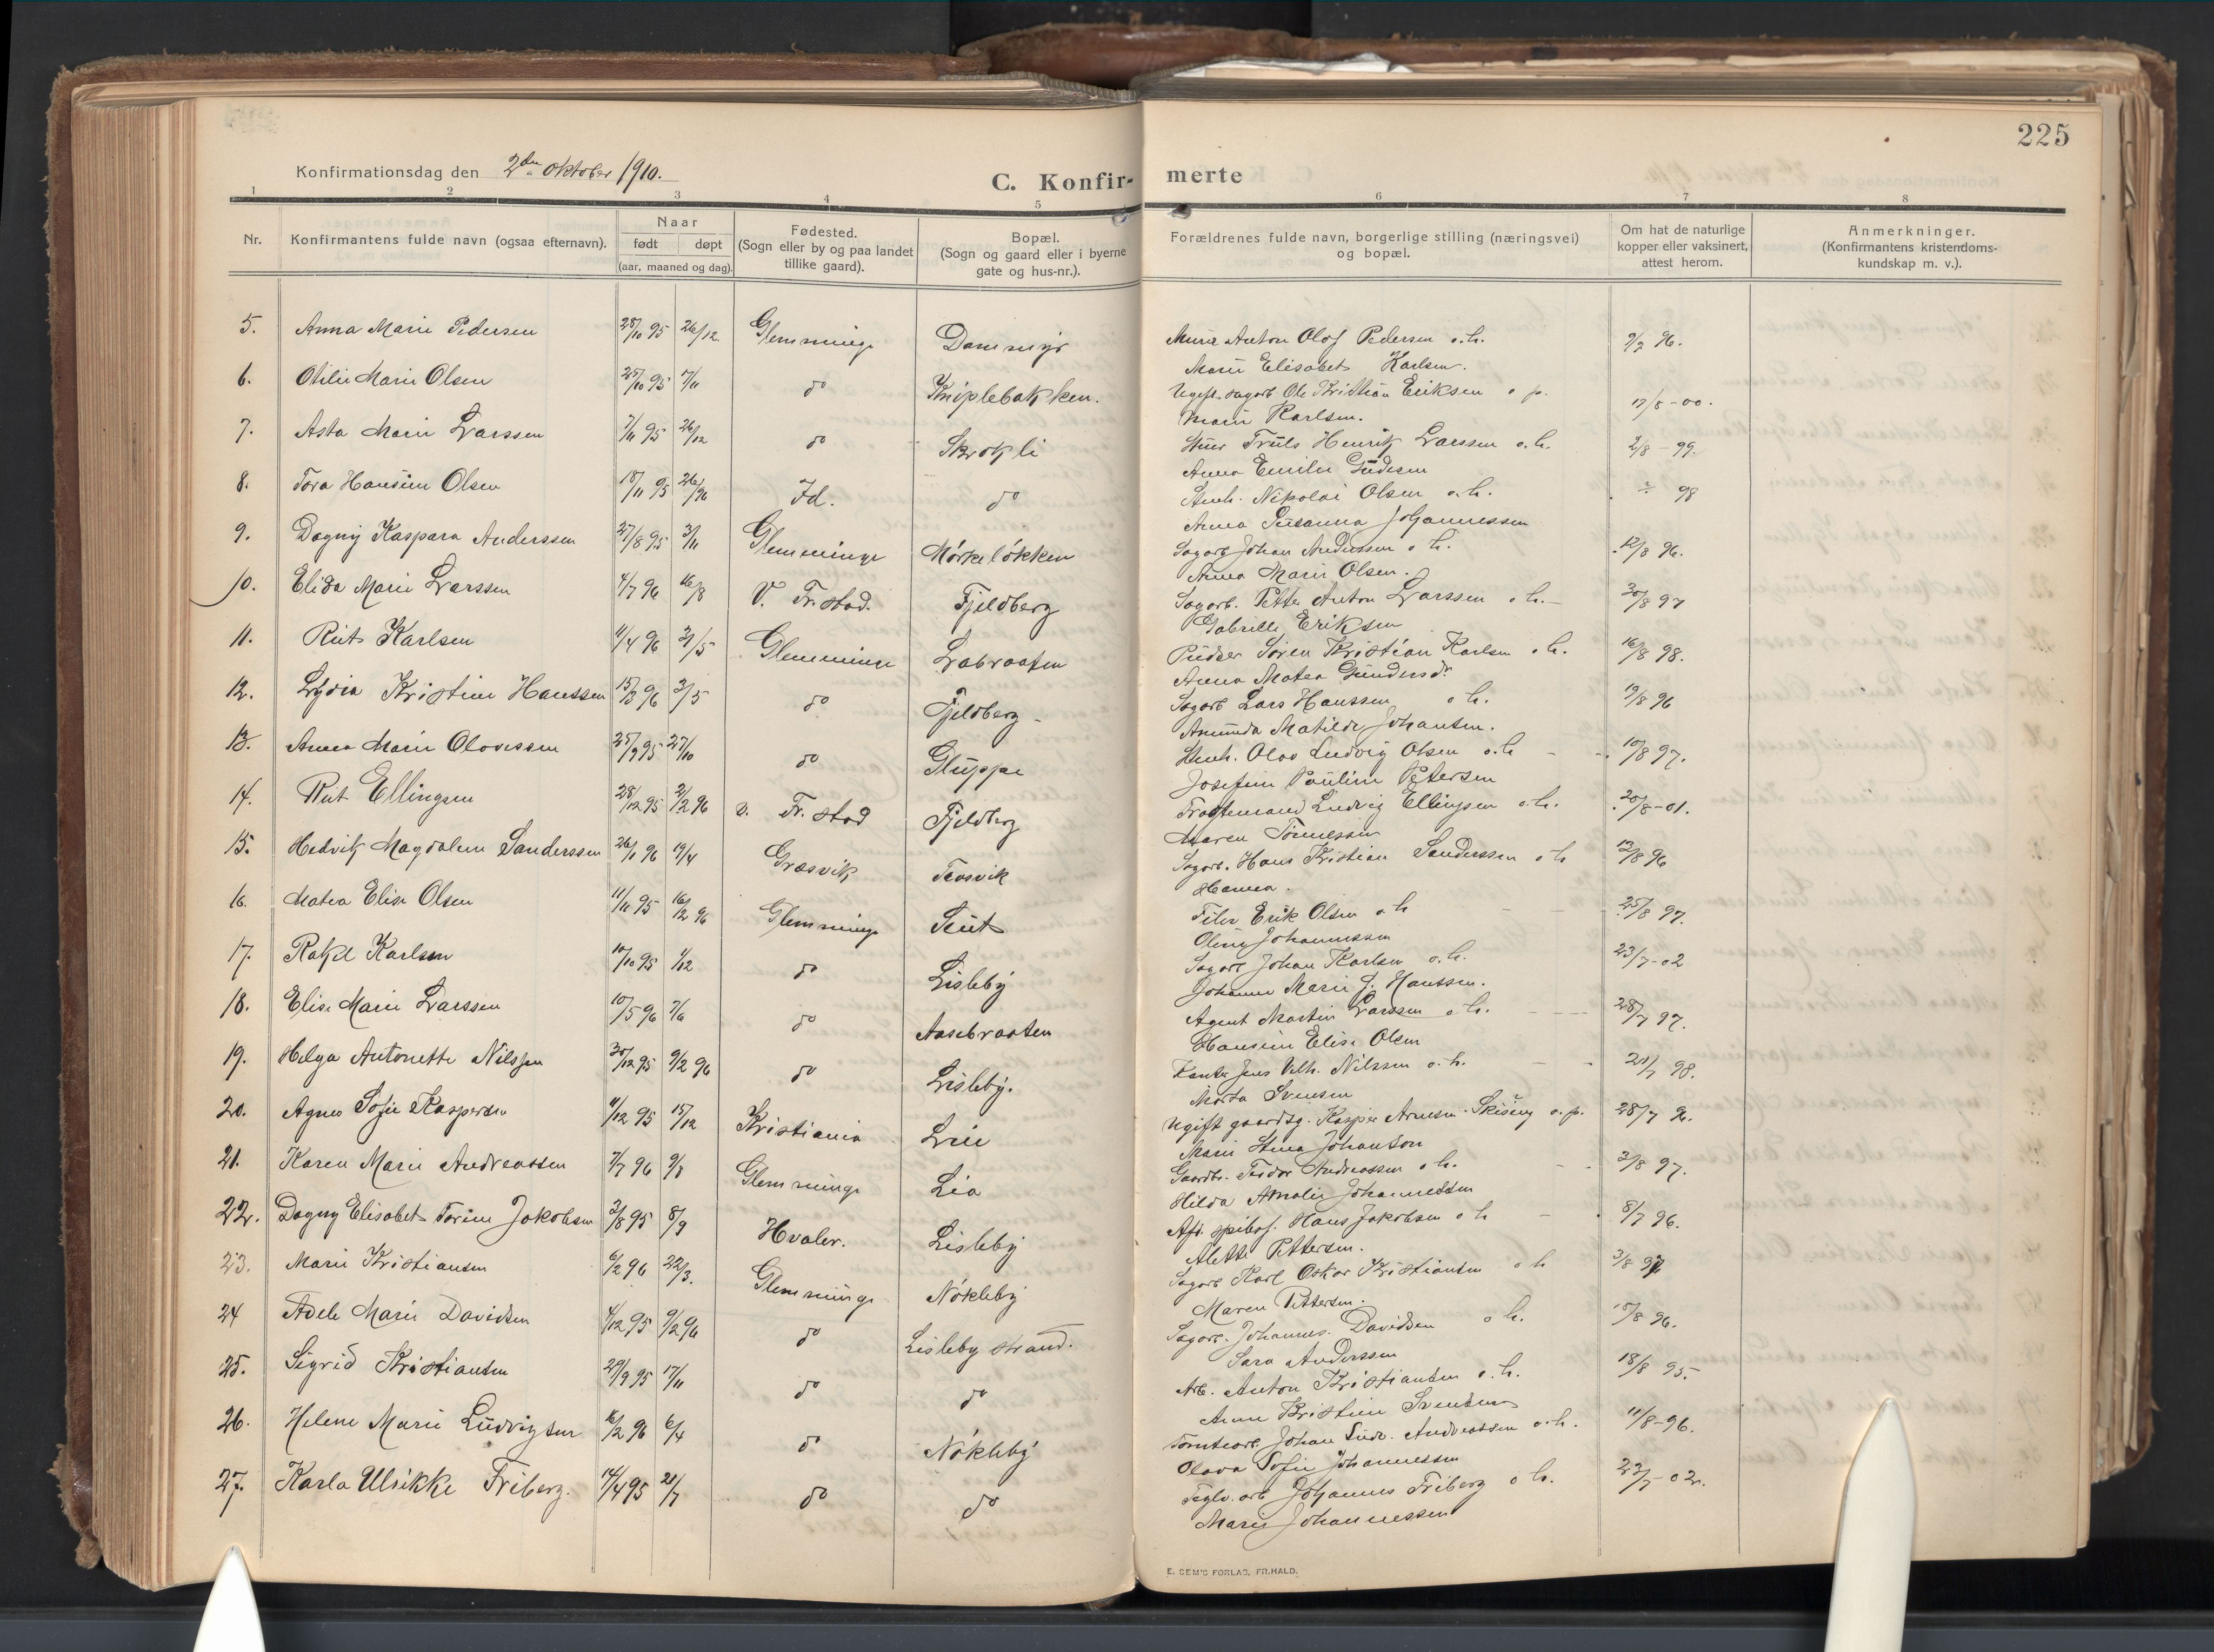 225
Konfirmationsdag den 2den oktober 1910.
C. Konfir- merte
1 2 3 4 5 6 7 8
Nr. Konfirmantens fulde navn (ogsaa efternavn). Naar født døpt (aar, maaned og dag). Fødested. (Sogn eller by og paa landet tillike gaard). Bopæl. (Sogn og gaard eller i byerne gate og hus-nr.). Forældrenes fulde navn, borgerlige stilling (næringsvei) og bopæl. Om hat de naturlige kopper eller vaksinert, attest herom. Anmerkninger. (Konfirmantens kristendoms- kundskap m. v.).
5. Anna Marie Pedersen 28/10 95 26/12. Glemminge Dammyr Murer Anton Olof Pedersen o. h. 9/2 96.
Marie Elisabet Karlsen.
6. Otilie Marie Olsen 25/10 95 17/11 do Kniplebakken. Ugift sagarb Ole Kristian Eriksen o p. 17/8-00.
Marie Karlsen.
7. Asta Marie Larssen 7/11 95 26/12 do Skrokli Truls Henrik Larssen o. h. 2/8-99.
Anna Emilie Gudesen
8. Tora Hansine Olsen 18/11 95 26/1 96 Id. do Stenh. Nikolai Olsen o. h. 98
Anna Susanna Johannessen
9. Dagny Kaspara Anderssen 27/8 95 3/11 Glemminge Mørkeløkken Sagarb Johan Anderssen o h. 12/8 96.
Anna Marie Olsen.
10. Elida Marie Larssen 4/7 96 16/8 V. Fr.stad. Fjeldberg Sagarb. Petter Anton Larssen o h. 30/8 97
Gabrielle Eriksen
11. Rut Karlsen 11/4 96 31/5 Glemminge Labraaten Pudser Søren Kristian Karlsen o h. 16/8 98.
Anna Matea Gundersdr
12. Lydia Kristine Hanssen 15/3 96 3/5 do Fjeldberg Sagarb Lars Hanssen o h. 19/8 96
Amunda Matilde Johansen.
13. Anna Marie Olavessen 25/9 95 27/10 do Gluppe Stenh. Olav Ludvig Olsen o. h 10/8 97.
Josefine Pauline Petersen
14. Rut Ellingsen 28/12 95 2/2 96 V. Fr. stad Fjeldberg Fragtemand Ludvig Ellingsen o. h. 20/8-01.
Maren Tønnessen
15. Hedvik Magdalene Sanderssen 26/1 96 19/4 Græsvik Trosvik Sagarb. Hans Kristian Sanderssen o h 12/8 96
Hanna.
16. Matea Elise Olsen 11/11 95 16/12 96 Glemminge Seut Filer Erik Olsen o. h 25/8 97.
Oline Johannessen
17. Rakel Karlsen 10/10 95 1/12 do Lisleby Sagarb Johan Karlsen o. h. 23/7-02
Johanne Marie J. Hanssen.
18. Elise Marie Larssen 10/5 96 7/6 do Aasebraaten Agent Martin Larssen o h. 28/7 97.
Hansine Elise Olsen
19. Helga Antonette Nilssen 30/12 95 9/2 96 do Lisleby. Jens Vilh. Nilssen o. h. 21/7 98.
Marta Svensen
20. Agnes Sofie Kaspersen 11/12 95 15/12 Kristiania Lrie Ugift gaardsg. Kasper Arnesen Skisæng o. p. 28/7 96.
Marie Stina Johanson
21. Karen Marie Andreassen 7/7 96 9/8 Glemminge Lia Gaardbr. Teodor Andreassen o h. 3/8 97.
Hilda Amalie Johannessen
22. Dagny Elisabet Torine Jakobsen 3/8 95 8/9 Hvaler. Lisleby Hans Jakobsen o h 8/7 96.
Alette Pettersen.
23. Marie Kristiansen 6/2 96 22/3. Glemminge Nøkleby Sagarb Karl Oskar Kristiansen o h 3/8 97
Maren Pettersen.
24 Adele Marie Davidsen 4/12 95 9/2 96 do Lisleby strand. Sagarb. Johannes Davidsen o h. 15/8 96.
Sara Anderssen
25. Sigrid Kristiansen 29/9 95 17/11 do do Arb. Anton Kristiansen o. h. 18/8 95.
Anne Kristine Svendsen
26. Helene Marie Ludvigsen 16/2 96 6/4 do Nøkleby Tomtearb. Johan Ludv. Andreassen o. h. 11/8-96.
Olava Sofie Johannessen
27. Karla Ulrikke Friberg. 14/4 95 21/7 do do Teglv. arb Johannes Friberg o h. 23/7-02.
Marie Johannessen
E. SEM'S FORLAG, FR.HALD.